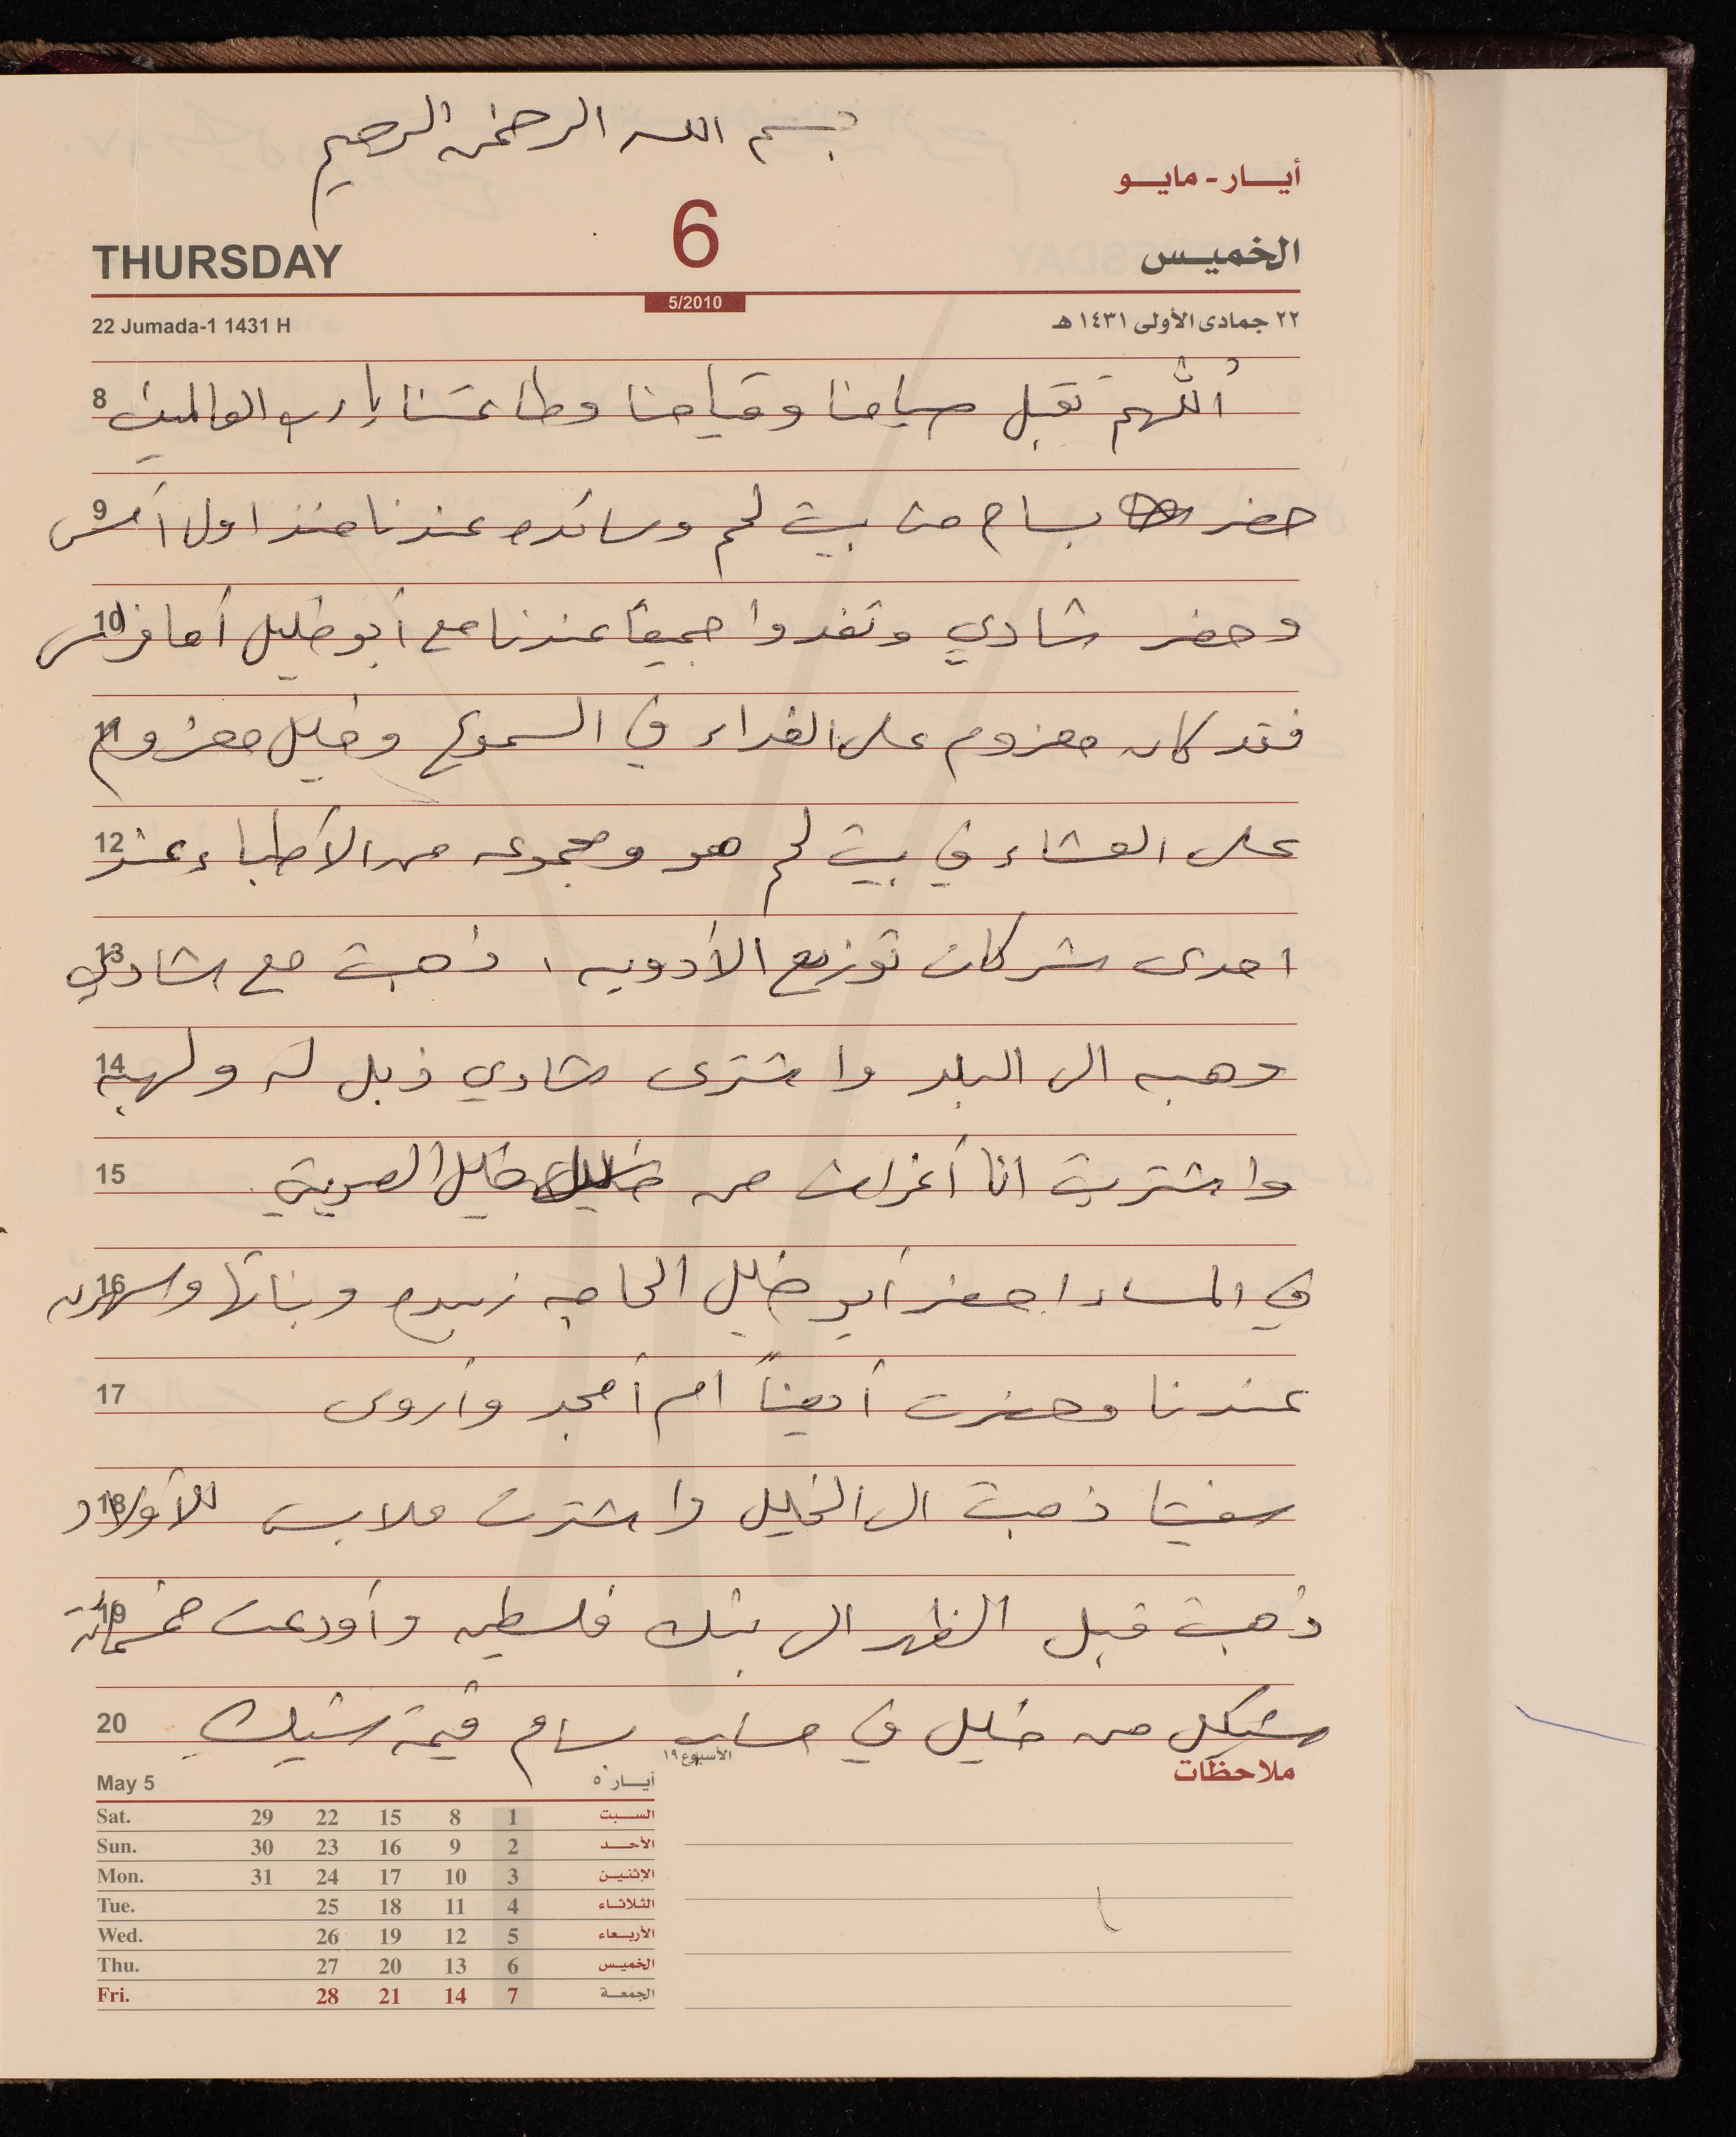 بسم الله الرحمن الرحيم
أيــار - مايــو
THURSDAY 6 الخميـس
5/2010
22 Jumada-1 1431 H ٢٢ جمادى الأولى ١٤٣١ هـ
8 أللهم تقبل صيامنا وقيامنا وطاعتنا يا رب العالمين
9 حضر بسام من بيت لحم وسائده عندنا منذ اول أمس
10 وحضر شادي وتغدوا جميعاً عندنا مع أبو خليل أما فراس
11 فقد كان معزوم على الغداء في السموع وخليل معزوم
12 على العشاء في بيت لحم هو ومجموعه من الأطباء عند
13 احدى شركات توزيع الأدويه ، ذهبت مع شادي
14 وهبه الى البلد واشترى شادي ذبل له ولهبه
15 واشتريت انا أغراض من خليل
16 في المساء احضر أبو خليل الحاجه زبيده وبناتها واسهرن
17 عندنا وحضرت أيضاً ام أمجد وأروى
18 ذهبت الى الخليل واشترت ملابس للأولاد
19 ذهبت قبل الظهر الى بنك فلسطين وأودعت خمسمائة
20 شيكل من خليل في حساب بسام قيمة شيك
ملاحظات
الأسبوع ١٩
May 5 أيــار ٥
Sat. 29 22 15 8 1 السـبت
Sun. 30 23 16 9 2 الأحــد
Mon. 31 24 17 10 3 الإثنيـن
Tue. 25 18 11 4 الثلاثـاء
Wed. 26 19 12 5 الأربـعاء
Thu. 27 20 13 6 الخميـس
Fri. 28 21 14 7 الجمعـة